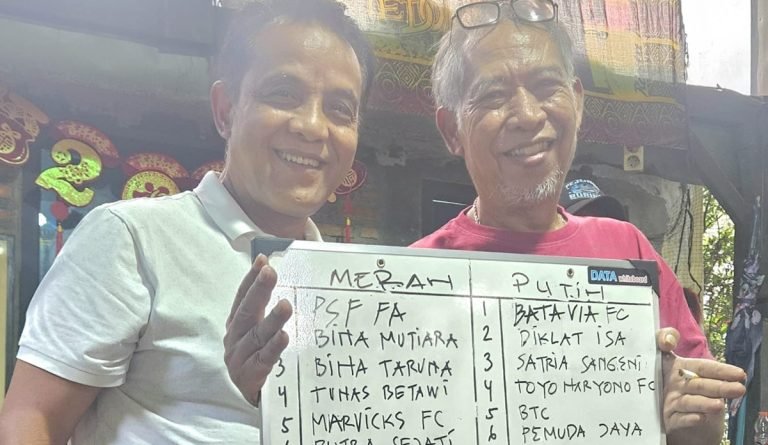 MERAH
PUTIH
DATA whiteboard
PSF FA
BINA MUTIARA
3 BINA TARUNA
4 TUNAS BETAWI
5 MARVICKS FC
6 PUTRA SEJATI
1 BATAVIA FC
2 DIKLAT ISA
3 SATRIA SANGENI
4 TOYO HARYONO FC
5 BTC
6 PEMUDA JAYA